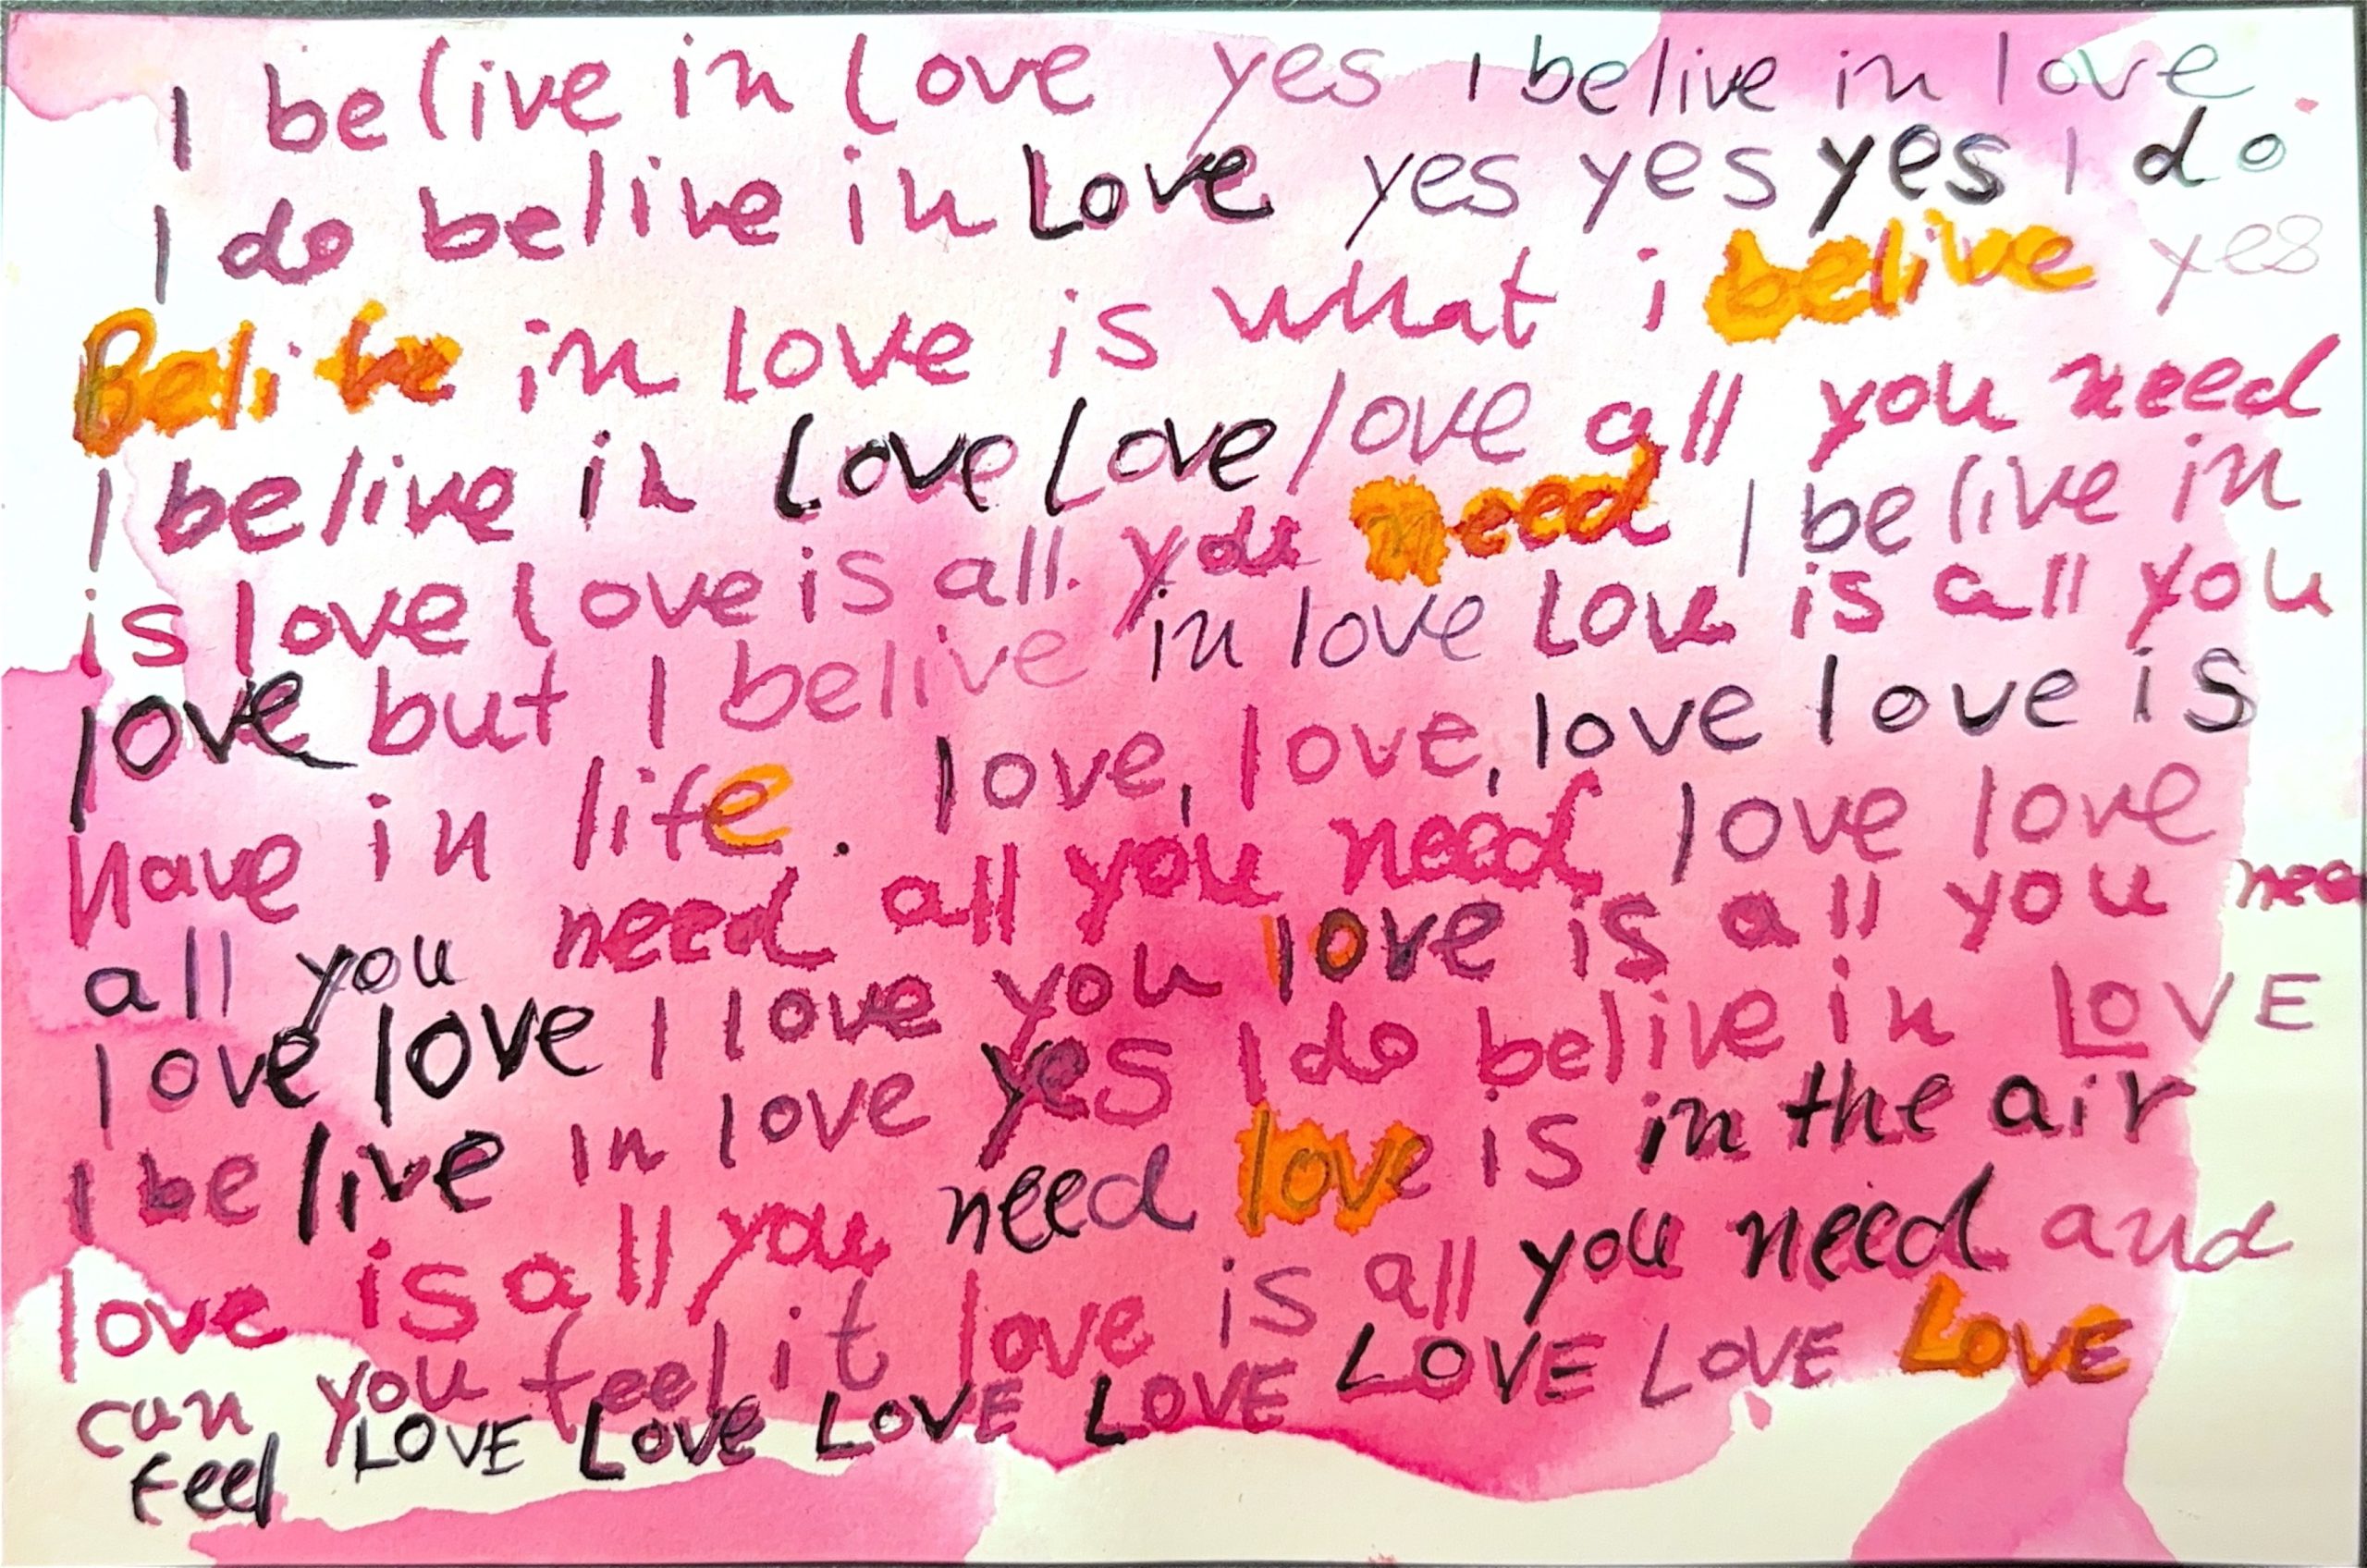 I belive in love yes I belive in love
I do belive in Love yes yes yes I do
Belive in love is what i belive yes
I belive in Love Love love all you need
is love love is all you need I belive in
love but I belive in love Love is all you
have in life. love, love, love love is
all you need all you need love love
love love I love you love is all you nee
I belive in love yes I do belive in LOVE
love is all you need love is in the air
can you feel it love is all you need and
feel LOVE Love LOVE LOVE LOVE LOVE LOVE